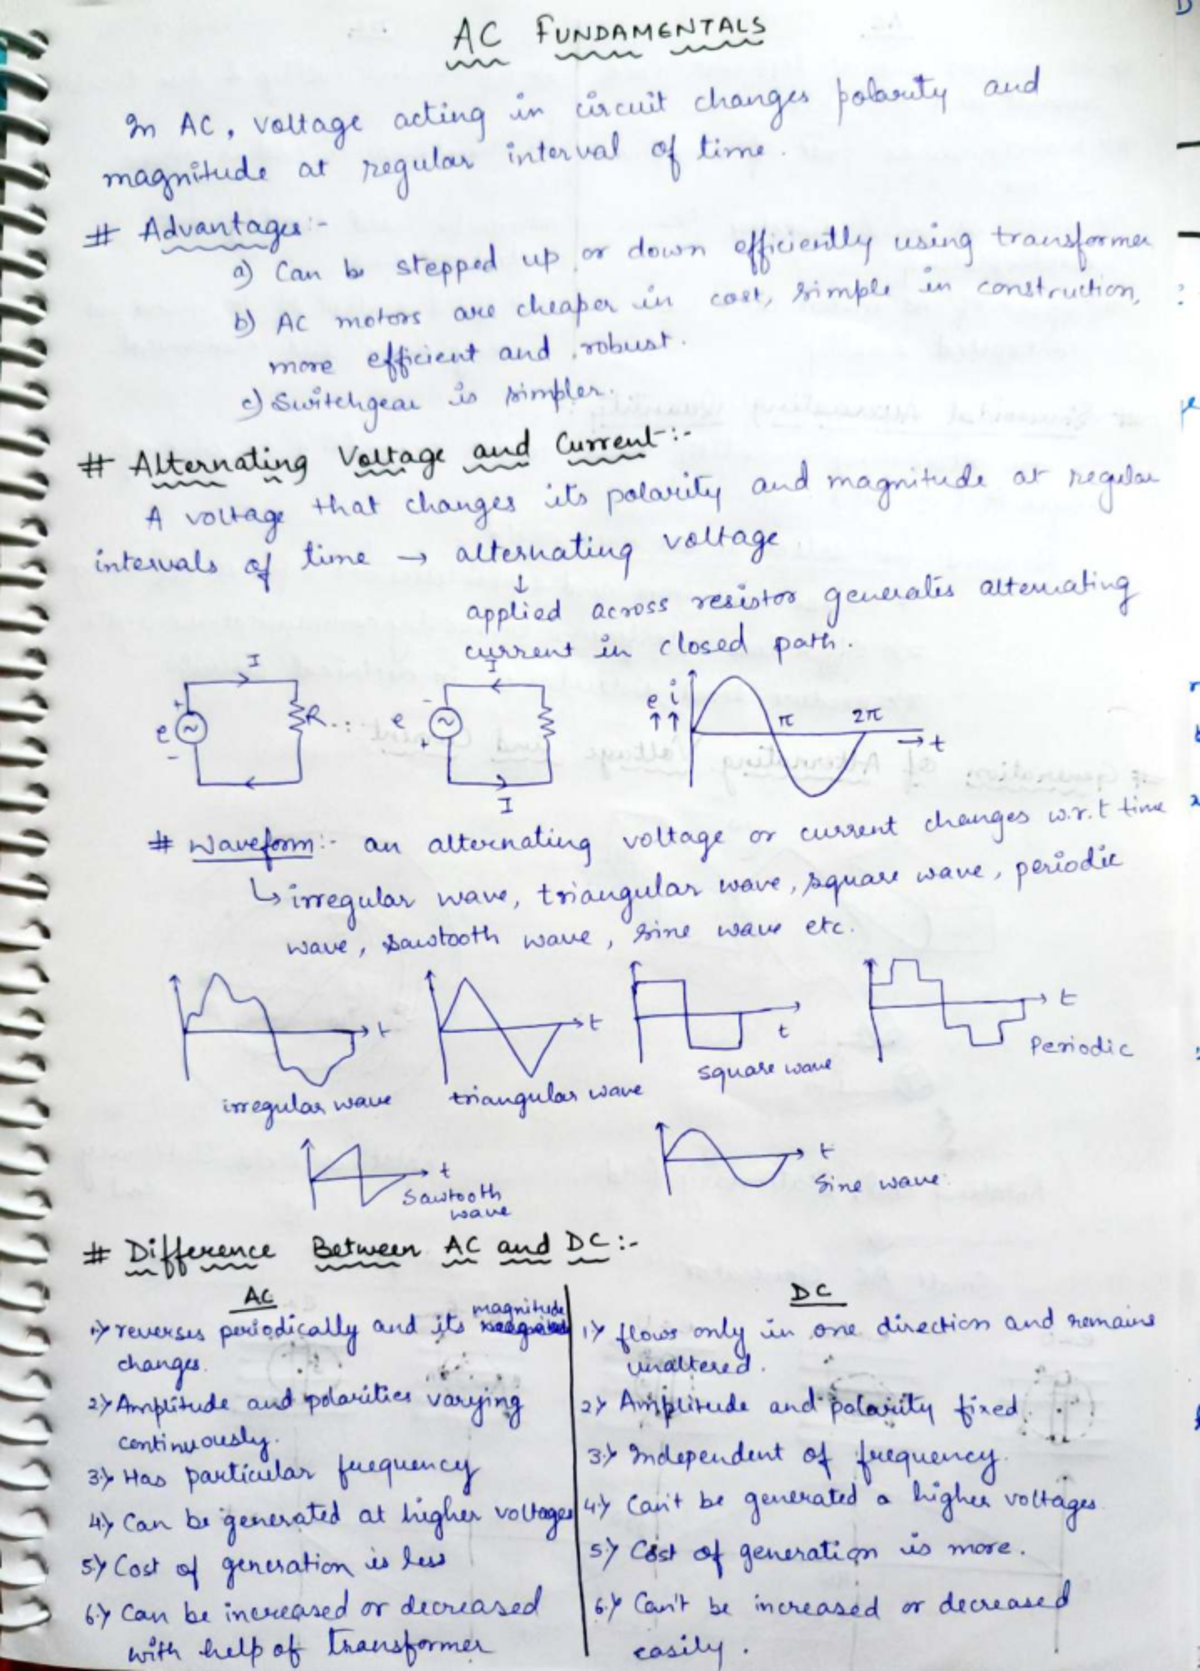 AC FUNDAMENTALS
In AC, voltage acting in circuit changes polarity and
magnitude at regular interval of time.
# Advantages:-
a) Can be stepped up or down efficiently using transformer
b) AC motors are cheaper in cost, simple in construction,
more efficient and robust.
c) Switchgear is simpler.
# Alternating Voltage and Current:-
A voltage that changes its polarity and magnitude at regular
intervals of time → alternating voltage
↓
applied across resistor generates alternating
current in closed path.
I
e + - ~ R
I
e - + ~
I
e i
↑↑
π 2π
→ t
# Waveform:- an alternating voltage or current changes w.r.t time
↳ irregular wave, triangular wave, square wave, periodic
wave, sawtooth wave, sine wave etc.
t
irregular wave
t
triangular wave
t
square wave
t
Periodic
t
Sawtooth
wave
t
Sine wave.
# Difference Between AC and DC:-
AC
1) reverses periodically and its magnitude
changes.
2) Amplitude and polarities varying
continuously.
3) Has particular frequency
4) Can be generated at higher voltages
5) Cost of generation is less
6) Can be increased or decreased
with help of transformer
DC
1) flows only in one direction and remains
unaltered.
2) Amplitude and polarity fixed
3) Independent of frequency.
4) Can't be generated a higher voltages
5) Cost of generation is more.
6) Can't be increased or decreased
easily.